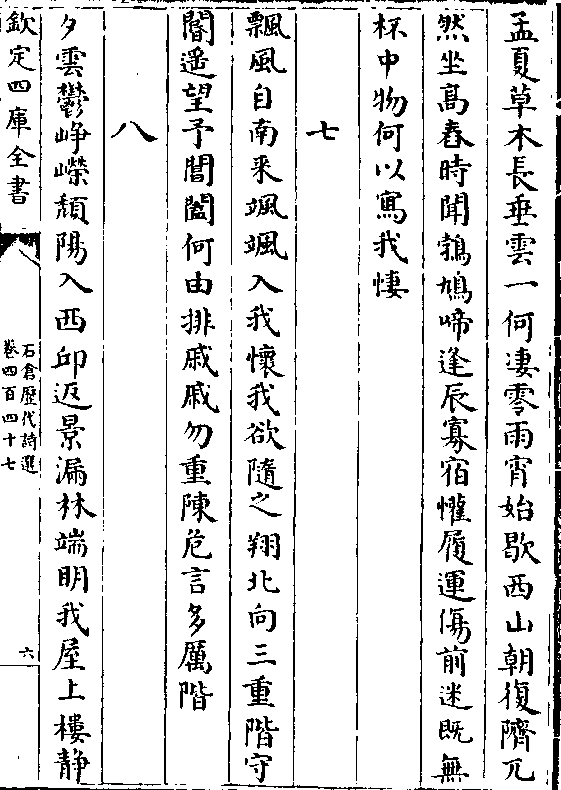 孟夏草木長垂雲一何淒零雨宵始歇西山朝復隮兀
然坐高舂時聞鵓鳩啼逢辰寡宿懽履運傷前迷既無
杯中物何以寫我悽
七
飄風自南来颯颯入我懷我欲隨之翔北向三重階守
閽遥望予閶闔何由排戚戚勿重陳危言多厲階
八
夕雲鬱崢嶸頹陽入西卯返景漏林端明我屋上樓静
欽定四庫全書
石倉歴代詩選
卷四百四十七
六